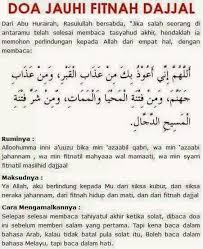 DOA JAUHI FITNAH DAJJAL
Dari Abu Hurairah, Rasulullah bersabda, "Jika salah seorang di
antaramu telah selesai membaca tasyahud akhir, hendaklah ia
memohon perlindungan kepada Allah dari empat hal, dengan
membaca:
اَللَّهُمَّ إِنِّي أَعُوْذُ بِكَ مِنْ عَذَابِ الْقَبْرِ، وَمِنْ عَذَابِ
جَهَنَّمَ، وَمِنْ فِتْنَةِ الْمَحْيَا وَالْمَمَاتِ، وَمِنْ شَرِّ فِتْنَةِ
الْمَسِيْحِ الدَّجَّالِ.
Ruminya :
Alloohumma inni a'uuzu bika min 'azaabil qabri, wa min 'azaabi
jahannam , wa min fitnatil mahyaa wal mamaati, wa min syarri
fitnatil masiihid dajjaal
Maksudnya :
Ya Allah, aku berlindung kepada Mu dari siksa kubur, dan siksa
neraka jahannam, dari fitnah hidup dan mati, dan dari fitnah dajjal.
Cara Mengamalkannya :
Selepas selesai membaca tahiyatul akhir ketika solat, dibaca doa
ini sebelum memberi salam yang pertama. Tapi kena baca dalam
bahasa Arab, kalau tidak batal pula solat tu. Di luar solat, boleh
baca dalam bahasa Melayu, tapi baca dalam hati.